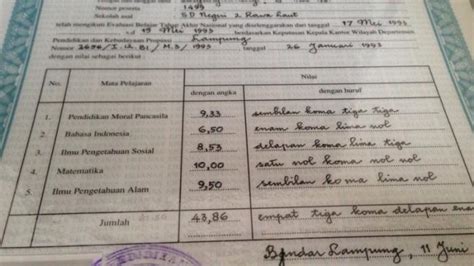 nomor 1499
Sekolah asal : SD Negeri 2 Rawa Laut
telah mengikuti Evaluasi Belajar Tahap Akhir Nasional yang diselenggarakan dari tanggal 17 Mei 1993
s.d 19 Mei 1993 berdasarkan Keputusan Kepala Kantor Wilayah Departemen
Pendidikan dan Kebudayaan Propinsi Lampung
Nomor tanggal 26 Januari 1993
dengan nilai sebagai berikut :
No. Mata Pelajaran Nilai
dengan angka dengan huruf
1. Pendidikan Moral Pancasila 9,33 sembilan koma tiga tiga
2. Bahasa Indonesia 6,50 enam koma lima nol
3. Ilmu Pengetahuan Sosial 8,53 delapan koma lima tiga
4. Matematika 10,00 satu nol koma nol nol
5. Ilmu Pengetahuan Alam 9,50 sembilan koma lima nol
Jumlah 43,86 empat tiga koma delapan ena
Bandar Lampung, 11 Juni